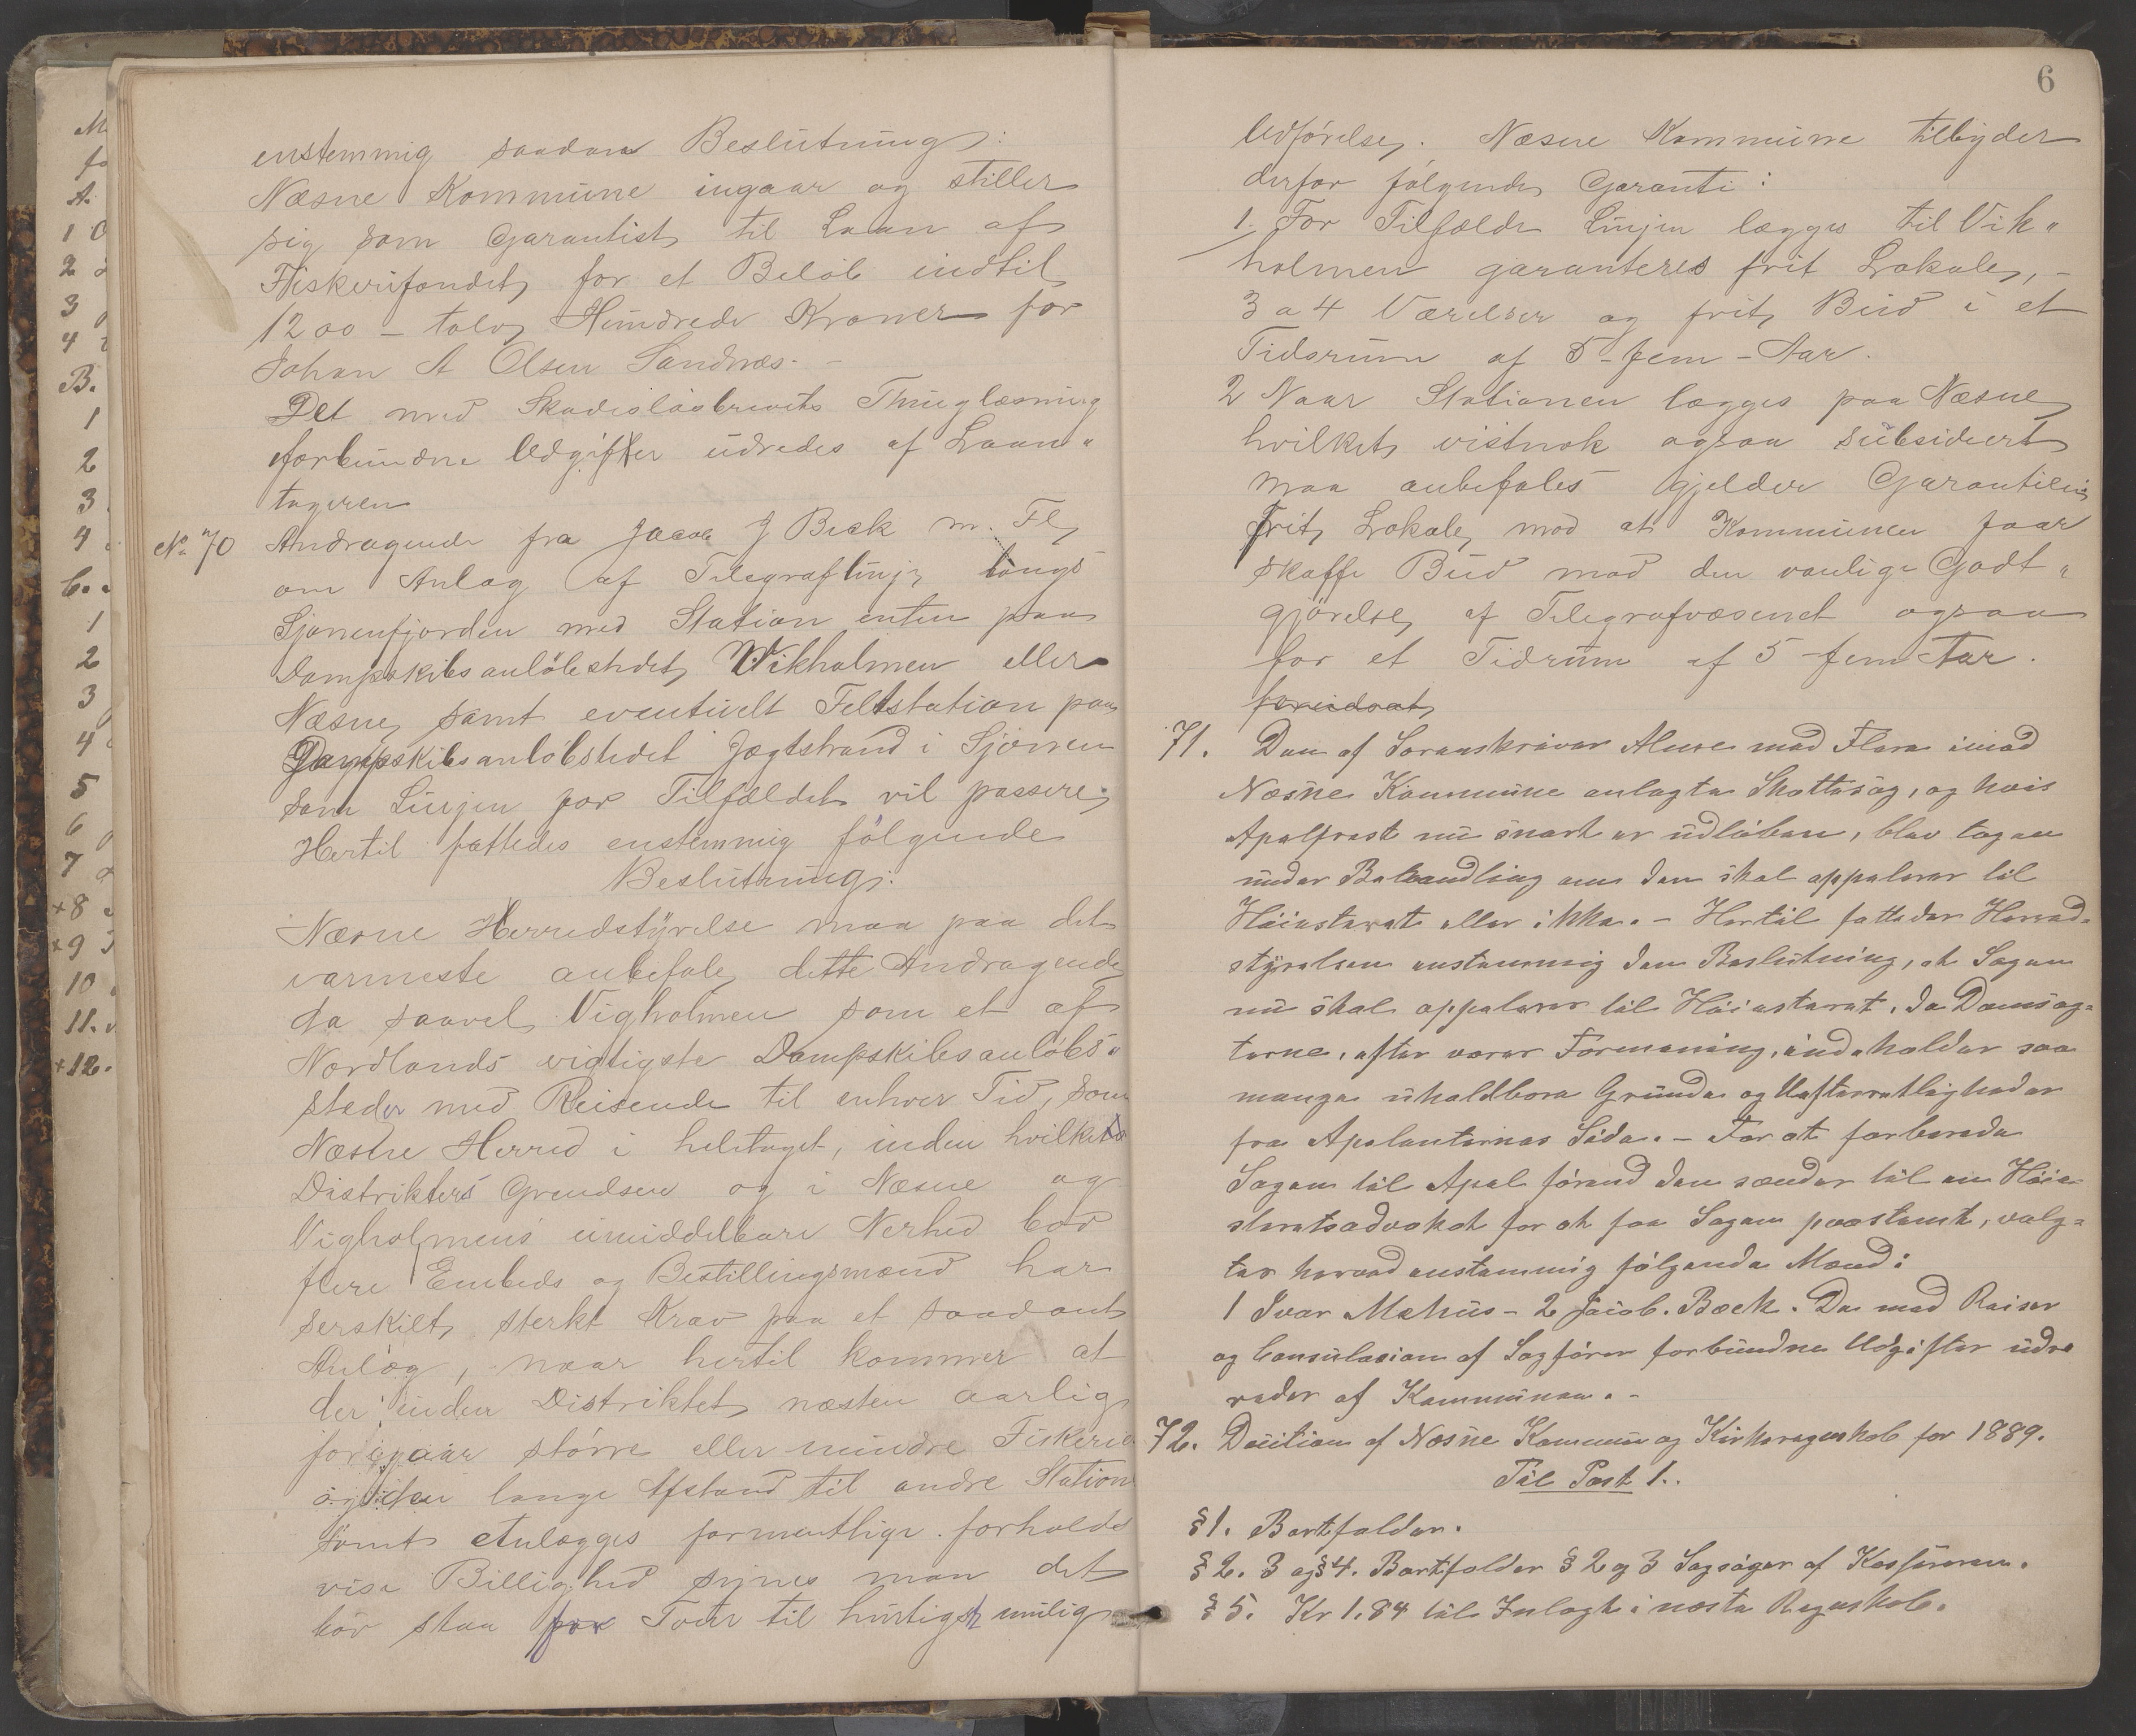 enstemmig saadan Beslutning:
Næsne Kommune ingaar og stiller
sig som Garantist til Laan af
Fiskerifondet for et Beløb indtil
1200 – tolv Hundrede Kroner for
Johan A Olsen Sandnæs. –
Det med Skadesløsbrevets Thinglæsning
forbundne Udgifter udredes af Laan"
tageren
No 70 Andragende fra Jacob J Beck m. Fl,
om Anlæg af Telegraflinje langs
Sjonenfjorden med Station enten paa
Dampskibsanløbestedet Wikholmen eller
Næsne, samt eventuelt Feltstation paa
Dampskibsanløbstedet Jægtstrand i Sjonen
som Linjen for Tilfældet vil passere;
Hertil fattedes enstemmig følgende
Beslutning:
Næsne Herredstyrelse maa paa det
varmeste anbefale dette Andragende
da saavel Vigholmen som et af
Nordlands vigtigste Dampskibsanløbs"
steder med Reisende til enhver Tid, som
Næsne Herred i heletaget, inden hvilket
Distrikters Grændsen og i Næsne og
Vigholmens umiddelbare Nerhed bod
flere Embeds og Bestillingsmænd har
serskilt sterkt Krav paa et saadant
Anlæg, naar hertil kommer at
der inden Distriktet næsten aarlig
foregaar større eller mindre Fiskerie
og den lange Afstand til andre Station
samt Anlægges formentlige forholds
vise Billighed synes man det
bør staa for Tour til hurtigst mulig
6
Udførelse. Næsne Kommune tilbyder
derfor følgende Garanti:
1. For Tilfælde Linjen lægges til Vik"
holmen garanteres frit Lokale, –
3 a 4 Værelser og frit Bud i et
Tidsrum af 5 – fem – Aar.
2 Naar Stationen lægges paa Næsne
hvilket vistnok ogsaa subsidiert
maa anbefales gjelder Garantien
Frit Lokale mod at Kommunen faar
skaffe Bud mod den vanlige Godt"
gjørelse af Telegrafvæsenet ogsaa
for et Tidrum af 5 – fem Aar.
71. Den af Sorenskriver Alme med Flere imod
Næsne Kommune anlagte Skattesag, og hvis
Apelfrist nu snart er udløben, blev tagen
under Behandling om den skal appelerer til
Høiesteret eller ikke. – Hertil fattedes Herred-
styrelsen enstemmig den Beslutning, at Sagen
nu skal appelerer til Høiesteret, da Domsag-
terne, efter vores Formening, indeholder saa
mange uholdbare Grunde og Uefterretligheder
fra Apelanternes Side. – For at forberede
Sagen til Apel førend den sender til en Høie-
steretsadvokat for at faa Sagen præstemt, valg-
tes herved enstemmig følgende Mænd:
1 Ivar Mehus – 2 Jacob. Beck. De med Reiser
og Consulasion af Sagfører forbundne Udgifter udre
reder af Kommunen. –
72. Desition af Næsne Kommune og Kirkeregnskab for 1889.
Til Post 1.
§ 1. Bortfalder.
§ 2. 3 og § 4. Bortfalder § 2 og 3 Sagsøger af Kasseren.
§ 5. Kr 1.84 til Indtægt i neste Regnskab.